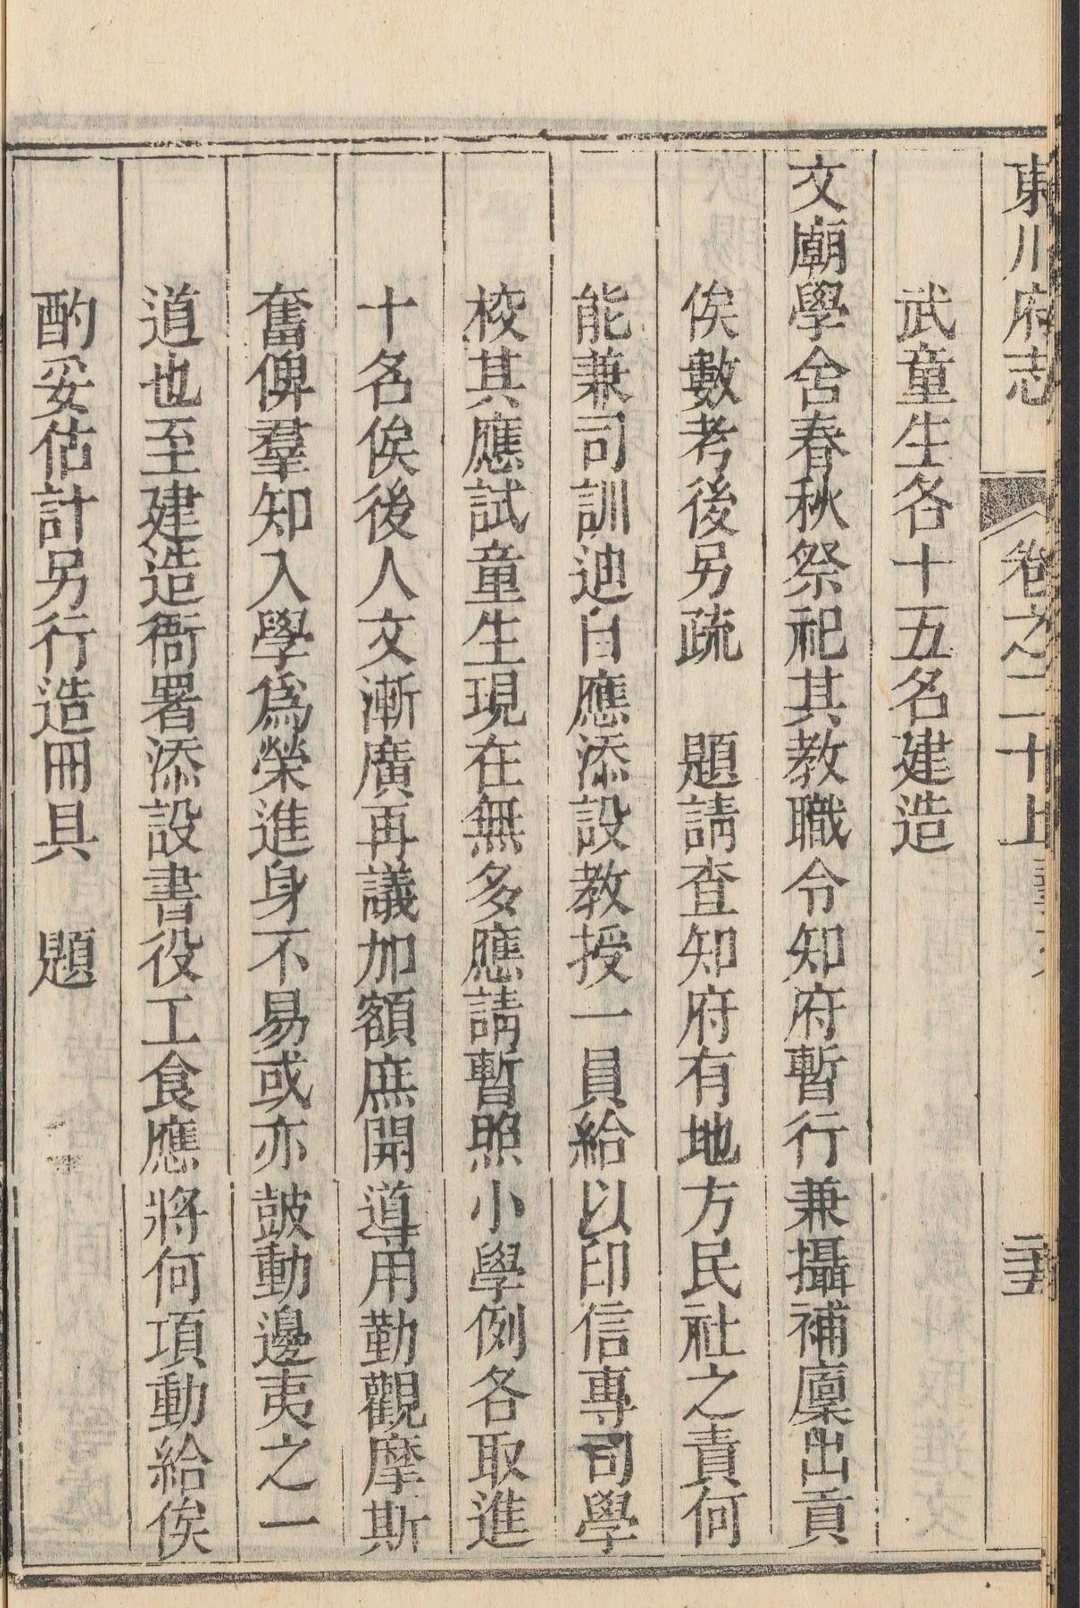 東川府志 卷之二十上
武童生各十五名建造
文廟學舍春秋祭祀其教職令知府暫行兼攝補廩出貢
俟數考後另疏 題請查知府有地方民社之責何
能兼司訓迪自應添設教授一員給以印信專司學
校其應試童生現在無多應請暫照小學例各取進
十名俟後人文漸廣再議加額庶開導用勤觀摩斯
奮俾羣知入學爲榮進身不易或亦鼓動邊夷之一
道也至建造衙署添設書役工食應將何項動給俟
酌妥估計另行造冊具 題